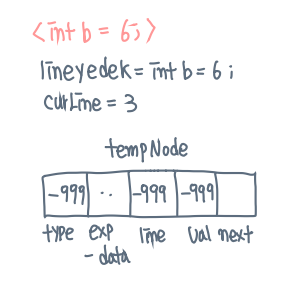 <int b = 6;>
lineyedek = int b = 6 ;
curLine = 3
tempNode
-999 .. -999 -999
type exp line val next
- data